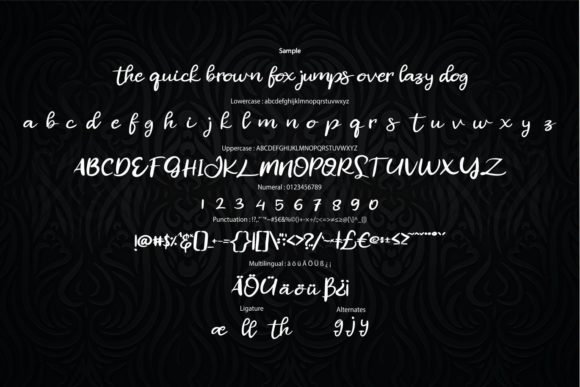 Sample
the quick brown fox jumps over lazy dog
Lowercase : abcdefghijklmnopqrstuvwxyz
a b c d e f g h i j k l m n o p q r s t u v w x y z
Uppercase : ABCDEFGHIJKLMNOPQRSTUVWXYZ
ABCDEFGHIJKLMNOPQRSTUVWXYZ
Numeral : 0123456789
1 2 3 4 5 6 7 8 9 0
Multilingual : ä ö ü Ä Ö Ü ß ¿ ¡
ÄÖÜäöüß¿¡
Ligature Alternates
æ ll th g j y